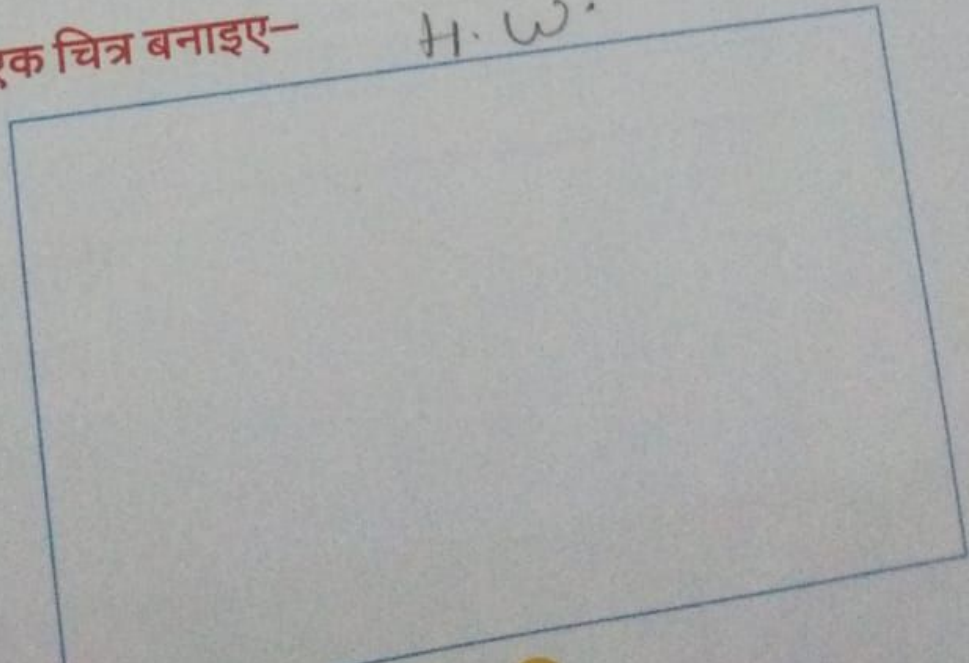 एक चित्र बनाइए– H. W.